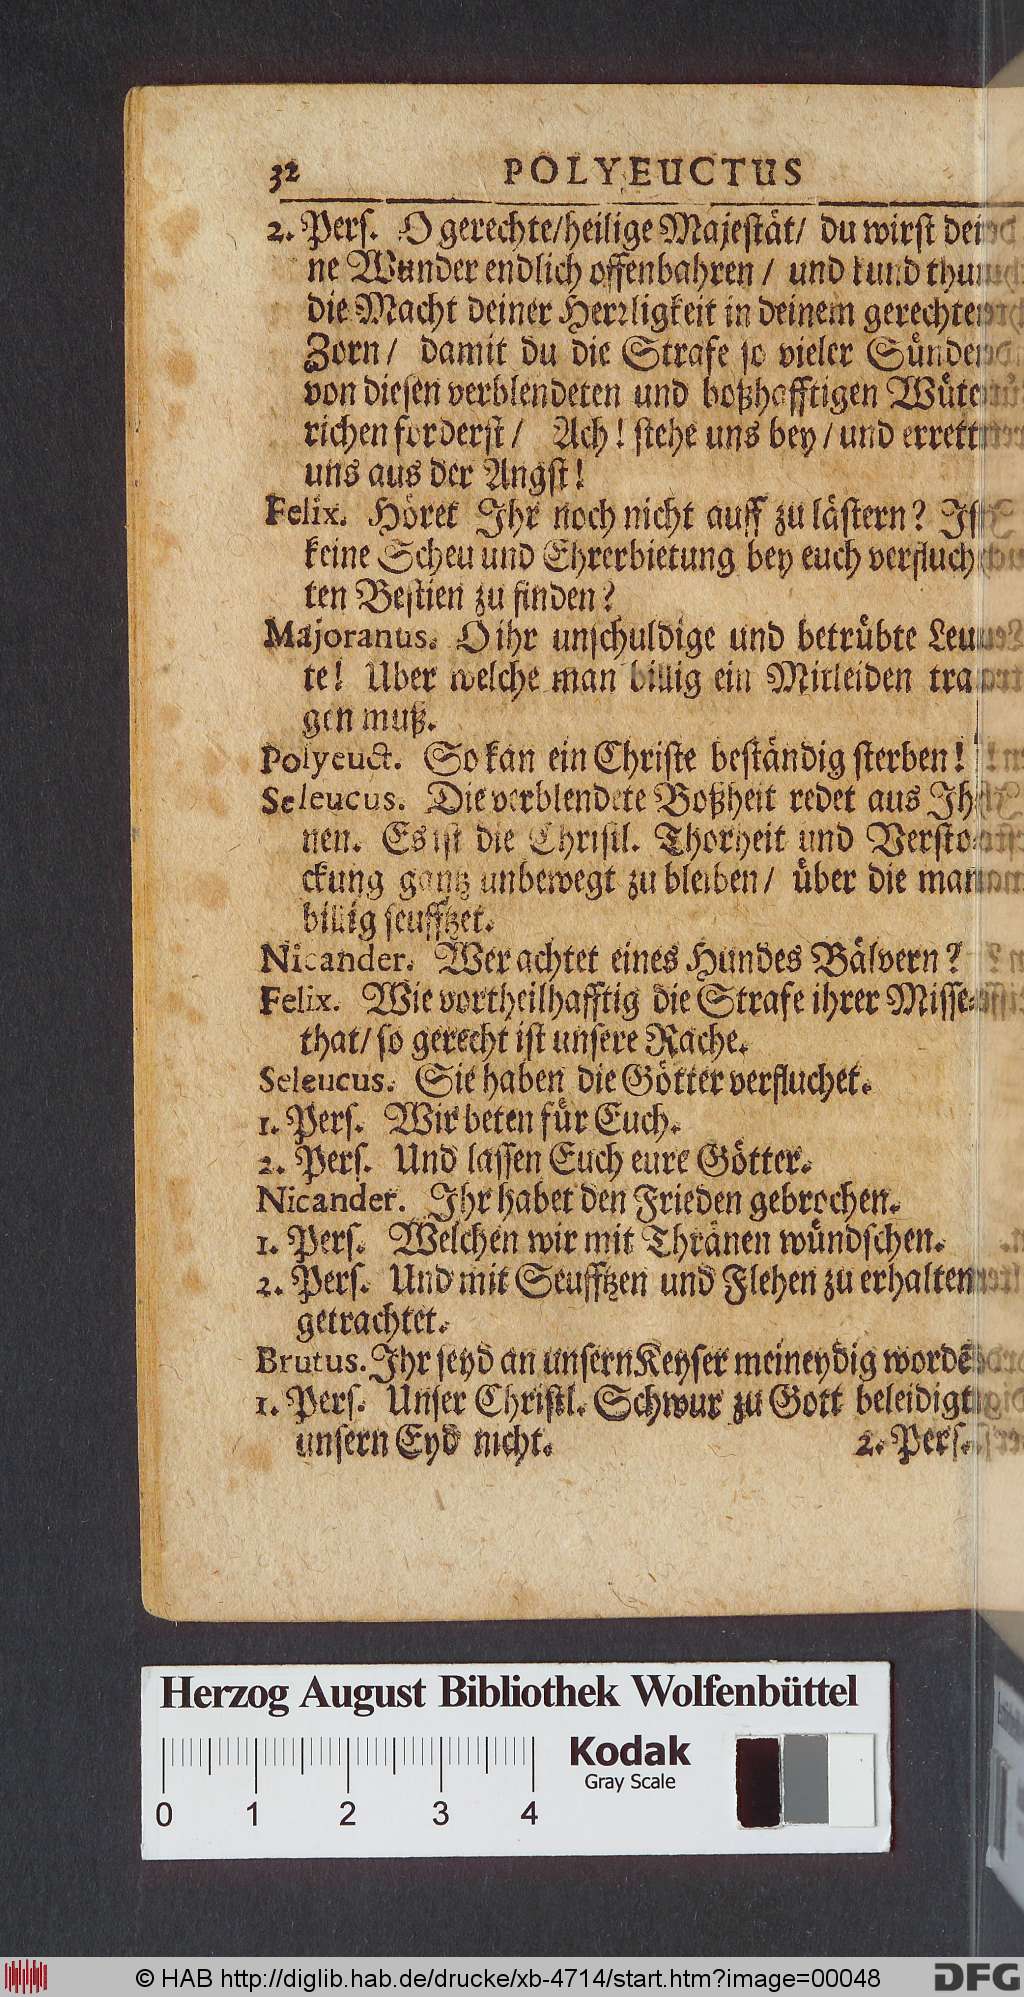 32 POLYEUCTUS
2. Pers. O gerechte/heilige Majestät/ du wirst dei
ne Wunder endlich offenbahren / und kund thun
die Macht deiner Herꝛligkeit in deinem gerechten
Zorn / damit du die Strafe so vieler Sünden
von diesen verblendeten und boßhafftigen Wüte
richen forderst / Ach! stehe uns bey / und errett
uns aus der Angst!
Felix. Höret Ihr noch nicht auff zu lästern? Ist
keine Scheu und Ehrerbietung bey euch verfluch
ten Bestien zu finden?
Majoranus. O ihr unschuldige und betrübte Leu
te! Uber welche man billig ein Mitleiden tra
gen muß.
Polyeuct. So kan ein Christe beständig sterben!
Seleucus. Die verblendete Boßheit redet aus Ih
nen. Es ist die Christl. Thorheit und Versto-
ckung gantz unbewegt zu bleiben / über die man
billig seufftzet.
Nicander. Wer achtet eines Hundes Bälvern?
Felix. Wie vortheilhafftig die Strafe ihrer Misse-
that/ so gerecht ist unsere Rache.
Seleucus. Sie haben die Götter verfluchet.
1. Pers. Wir beten für Euch.
2. Pers. Und lassen Euch eure Götter.
Nicander. Ihr habet den Frieden gebrochen.
1. Pers. Welchen wir mit Thränen wündschen.
2. Pers. Und mit Seufftzen und Flehen zu erhalten
getrachtet.
Brutus. Ihr seyd an unsern Keyser meineydig wordē
1. Pers. Unser Christl. Schwur zu Gott beleidigt
unsern Eyd nicht. 2. Pers.
Herzog August Bibliothek Wolfenbüttel
Kodak
Gray Scale
0 1 2 3 4
© HAB http://diglib.hab.de/drucke/xb-4714/start.htm?image=00048
DFG